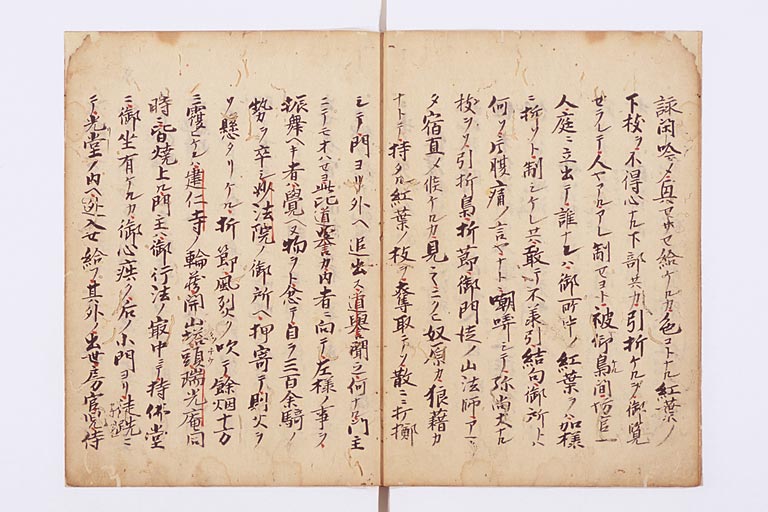 詠閑吟ノ興ヲ催セ給ケルカ色コトナル紅葉ノ
下枝ヲ不得心ナル下部共カ引折ケルヲ御覧
セラレテ人ヤアルアレ制セヨト被仰鳧間坊官一
人庭ニ立出テ誰ナレハ御所中ノ紅葉ヲハ加様
ニ折ソト制シケレ共敢テ不承引結句御所トハ
何ソ片腹痛ノ言ヤナト嘲哢シテ弥尚大ナル
枝ヲソ引折鳧折節御門徒ノ山法師アマ
タ宿直メ候ケルカ見之ニクヒ奴原カ狼藉カ
ナトテ持タル紅葉ノ枝ヲ奪取テ散々ニ打擲
シテ門ヨリ外ヘ追出ス道誉聞之何ナル門主
ニテモオハセヨ此比道誉カ内者ニ向テ左様ノ事ヲ
振舞ヘキ者ハ覚ヌ物ヲト忿テ自ラ三百余騎ノ
勢ヲ率シ妙法院ノ御所ヘ押寄テ則火ヲ
ソ懸タリケル折節風烈ク吹テ餘烟十方
ニ覆ヒケレハ建仁寺ノ輪蔵開山塔頭瑞光庵同
時ニ皆焼上ル門主ハ御行法ノ最中ニテ持佛堂
ニ御坐有ケルカ御心疾ク后ノ小門ヨリ徒跣ニ
テ光堂ノ内ヘ逃入セ給フ其外ノ出世房官児侍